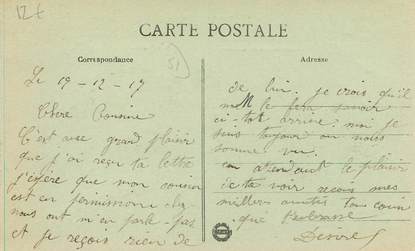 12 t
CARTE POSTALE
Correspondance
51
Adresse
Le 19-12-17
Chere Cousine
C'est avec grand plaisir
que j'ai reçu ta lettre
j'espère que mon cousin
est en permission
nous ont m'en parle pas
et je reçois rien de
de lui. je crois qu'il
me le fera savoir
ci-tot arrivé. moi je
suis toujour ou nous
somme vu.
en atendant le plaisir
de ta voir reçois mes
meillers amitiés ton cousin
que t'embrasse
Desire